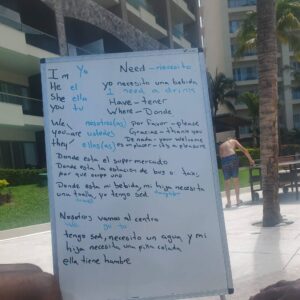 I'm Yo Need - necesito
He el yo necesito una bebida
She ella I need a drink
you tu Have - tener
Where - Donde
We nosotros(as) por favor - please
you are ustedes Gracias - thank you
they ellos(as) De nada - your welcome
es un placer - it's a pleasure
Donde esta el super mercado
Donde esta la estacion de bus o taxi
por que ocupo uno
Donde esta mi bebida, mi hija necesita
una toalla, yo tengo sed
Nosotros vamos al centro
We go to
tengo sed, necesito un agua y mi
hija necesita una piña colada
ella tiene hambre